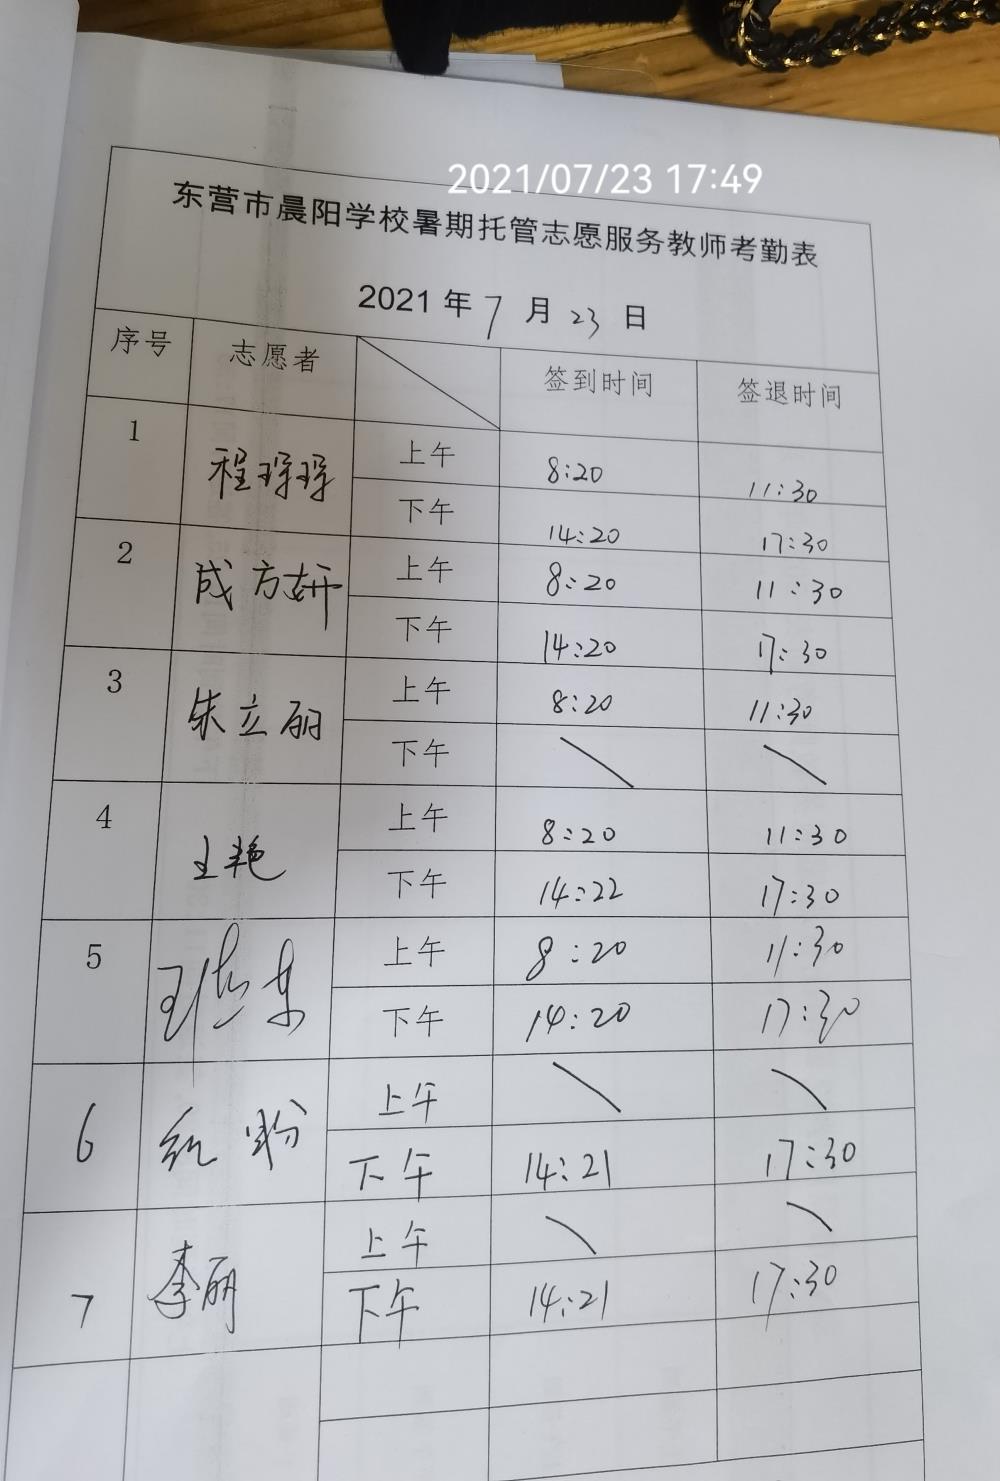 2021/07/23 17:49
东营市晨阳学校暑期托管志愿服务教师考勤表
2021 年 7 月 23 日
序号 志愿者 签到时间 签退时间
1 程琤琤 上午 8:20 11:30
下午 14:20 17:30
2 成方妍 上午 8:20 11:30
下午 14:20 17:30
3 朱立丽 上午 8:20 11:30
下午
4 王艳 上午 8:20 11:30
下午 14:22 17:30
5 上午 8:20 11:30
下午 14:20 17:30
6 上午
下午 14:21 17:30
7 李丽 上午
下午 14:21 17:30